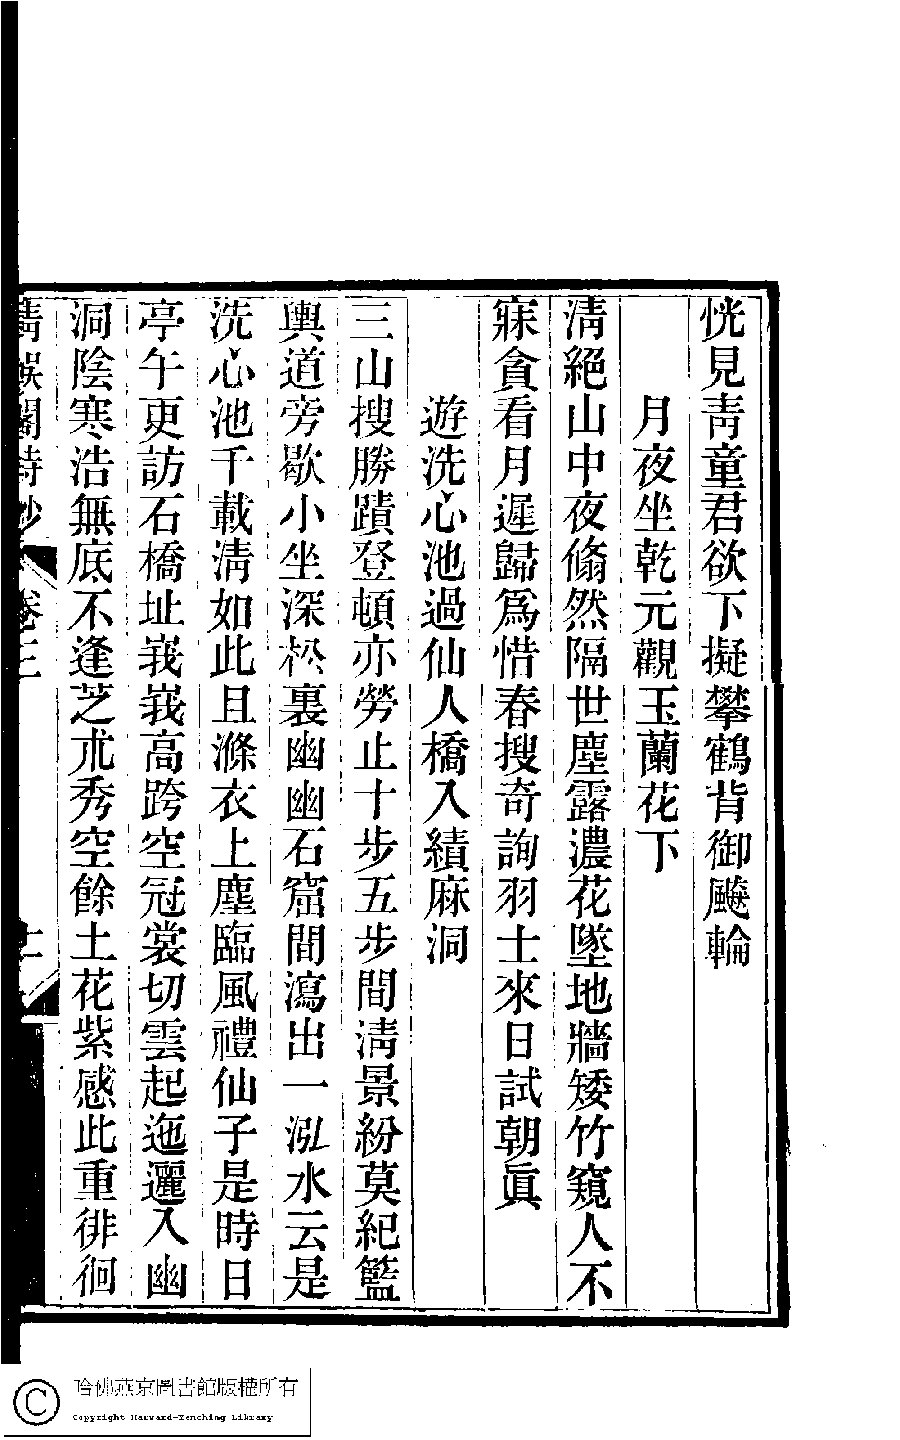 恍見靑童君欲下擬攀鶴背御飈輪
月夜坐乾元觀玉蘭花下
淸絕山中夜翛然隔世塵露濃花墜地牆矮竹窺人不
寐貪看月遲歸爲惜春搜奇詢羽士來日試朝眞
遊洗心池過仙人橋入績麻洞
三山搜勝蹟登頓亦勞止十步五步間淸景紛莫紀籃
輿道旁歇小坐深松裏幽幽石窟間瀉出一泓水云是
洗心池千載淸如此且滌衣上塵臨風禮仙子是時日
亭午更訪石橋址峩峩高跨空冠裳切雲起迤邐入幽
洞陰寒浩無底不逢芝朮秀空餘土花紫感此重徘徊
淸娛閣詩鈔 卷三
哈佛燕京圖書館版權所有
Copyright Harvard-Yenching Library